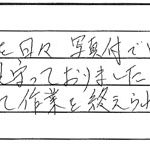 を日々 写真付で
見守っておりました
て作業を終えられ